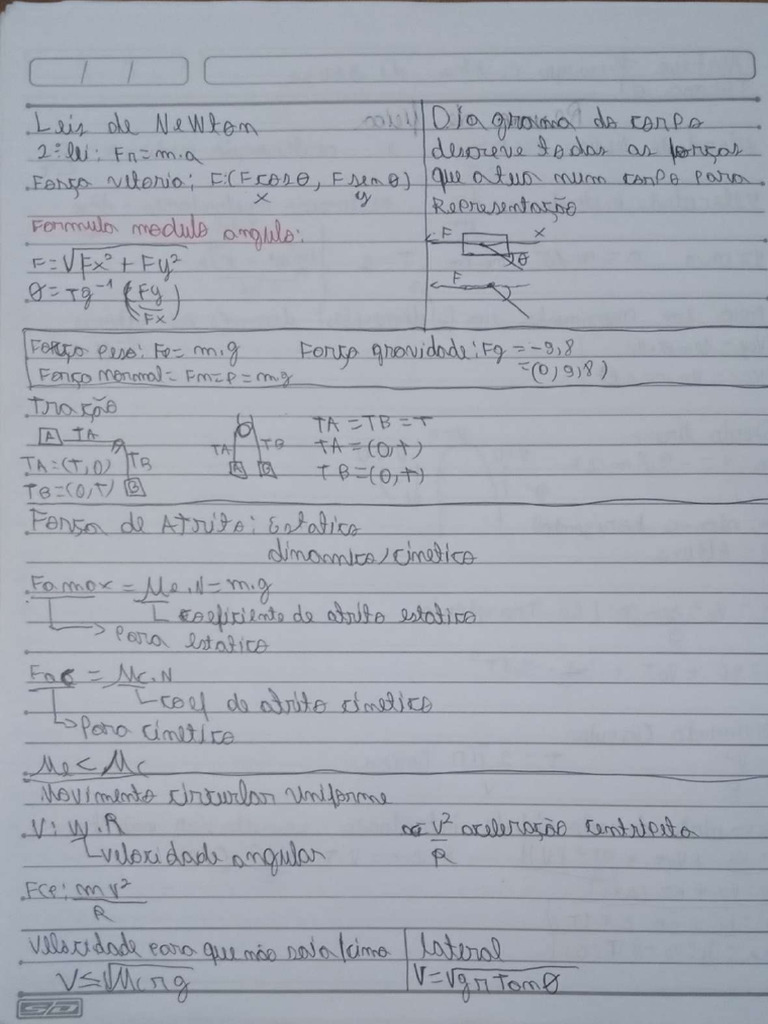 Leis de Newton
2ª lei: Fr=m.a
Força vetoria: F:(F cosθ, F senθ)
x y
Formula modulo angulo:
F=√Fx²+Fy²
θ=Tg⁻¹(Fy/Fx)
Diagrama do corpo
descreve todas as forças
que atua num corpo para
Representação
F x
θ
F
Força peso: Fp= m.g Força gravidade: Fg = -9,8
=(0, 9,8)
Força normal= Fn=P=m.g
Tração
A TA
TA=(T,0) TB
TB=(0,T) B
TA TB
A B
TA = TB = T
TA = (0,T)
TB=(0,T)
Força de Atrito: Estatico
dinamico/cinetico
Fa max = Me.N=m.g
coeficiente de atrito estatico
Para estatico
Fac = Mc.N
coef de atrito cinetico
Para cinetico
Me < Mc
Movimento circular Uniforme
V: W.R ac V²/R aceleração centripeta
velocidade angular
Fce: mV²/R
Velocidade para que não saia/cima
V≤√Mcrg
lateral
V=√grTanθ